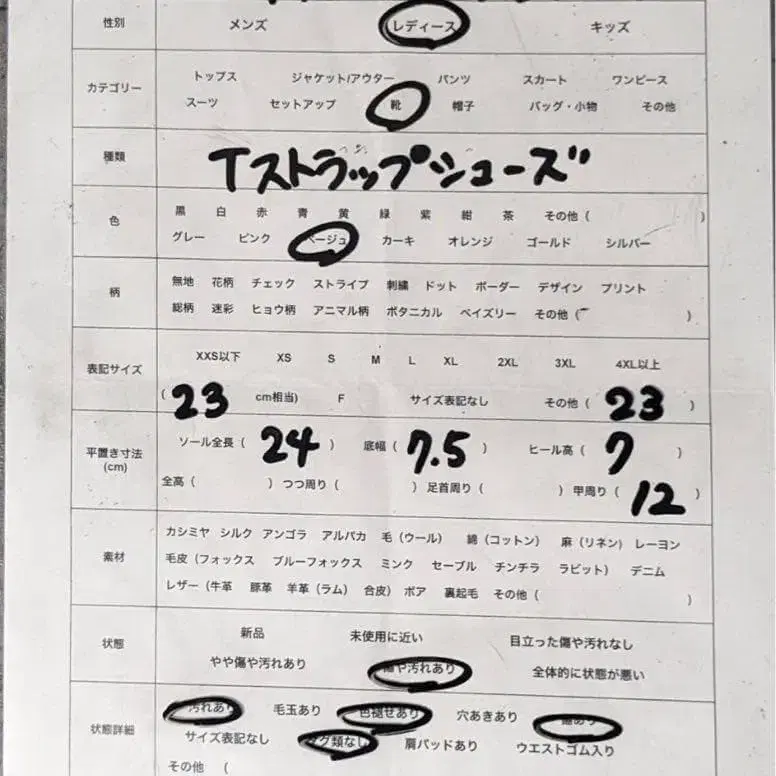 性別 メンズ レディース キッズ
カテゴリー
トップス ジャケット/アウター パンツ スカート ワンピース
スーツ セットアップ 靴 帽子 バッグ・小物 その他
種類 Tストラップシューズ
色
黒 白 赤 青 黄 緑 紫 紺 茶 その他 ( )
グレー ピンク ベージュ カーキ オレンジ ゴールド シルバー
柄
無地 花柄 チェック ストライプ 刺繍 ドット ボーダー デザイン プリント
総柄 迷彩 ヒョウ柄 アニマル柄 ボタニカル ペイズリー その他 ( )
表記サイズ
XXS以下 XS S M L XL 2XL 3XL 4XL以上
( 23 cm相当) F サイズ表記なし その他 ( 23 )
平置き寸法
(cm)
ソール全長 ( 24 ) 底幅 ( 7.5 ) ヒール高 ( 7 )
全高 ( ) つつ周り ( ) 足首周り ( ) 甲周り ( 12 )
素材
カシミヤ シルク アンゴラ アルパカ 毛 (ウール) 綿 (コットン) 麻 (リネン) レーヨン
毛皮 (フォックス ブルーフォックス ミンク セーブル チンチラ ラビット) デニム
レザー (牛革 豚革 羊革 (ラム) 合皮) ボア 裏起毛 その他 ( )
状態
新品 未使用に近い 目立った傷や汚れなし
やや傷や汚れあり 傷や汚れあり 全体的に状態が悪い
状態詳細
汚れあり 毛玉あり 色褪せあり 穴あきあり あり
サイズ表記なし タグ類なし 肩パッドあり ウエストゴム入り
その他 (